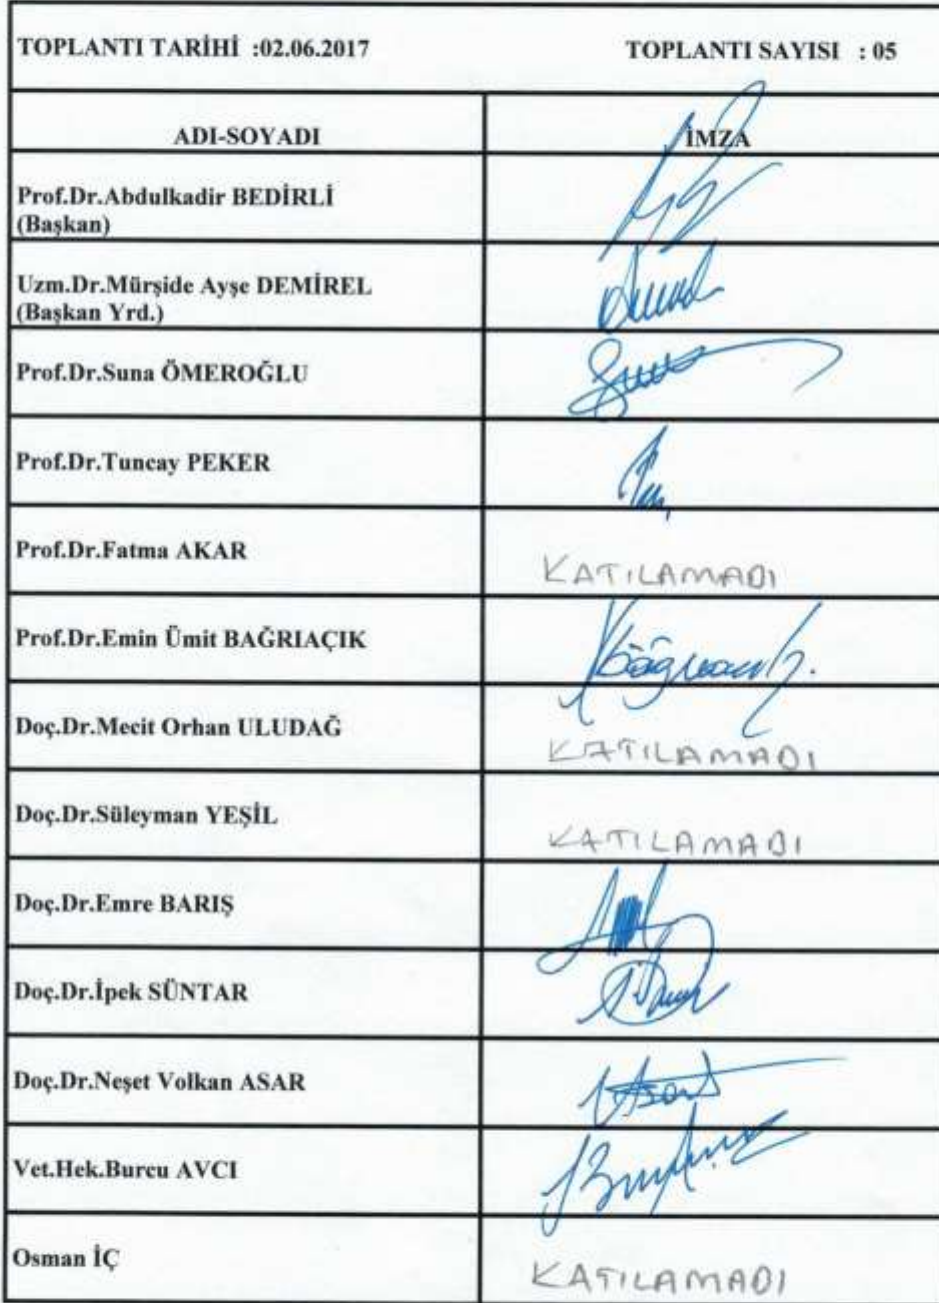 TOPLANTI TARİHİ :02.06.2017 TOPLANTI SAYISI : 05
ADI-SOYADI İMZA
Prof.Dr.Abdulkadir BEDİRLİ
(Başkan)
Uzm.Dr.Mürşide Ayşe DEMİREL
(Başkan Yrd.)
Prof.Dr.Suna ÖMEROĞLU
Prof.Dr.Tuncay PEKER
Prof.Dr.Fatma AKAR KATILAMADI
Prof.Dr.Emin Ümit BAĞRIAÇIK
Doç.Dr.Mecit Orhan ULUDAĞ KATILAMADI
Doç.Dr.Süleyman YEŞİL KATILAMADI
Doç.Dr.Emre BARIŞ
Doç.Dr.İpek SÜNTAR
Doç.Dr.Neşet Volkan ASAR
Vet.Hek.Burcu AVCI
Osman İÇ KATILAMADI